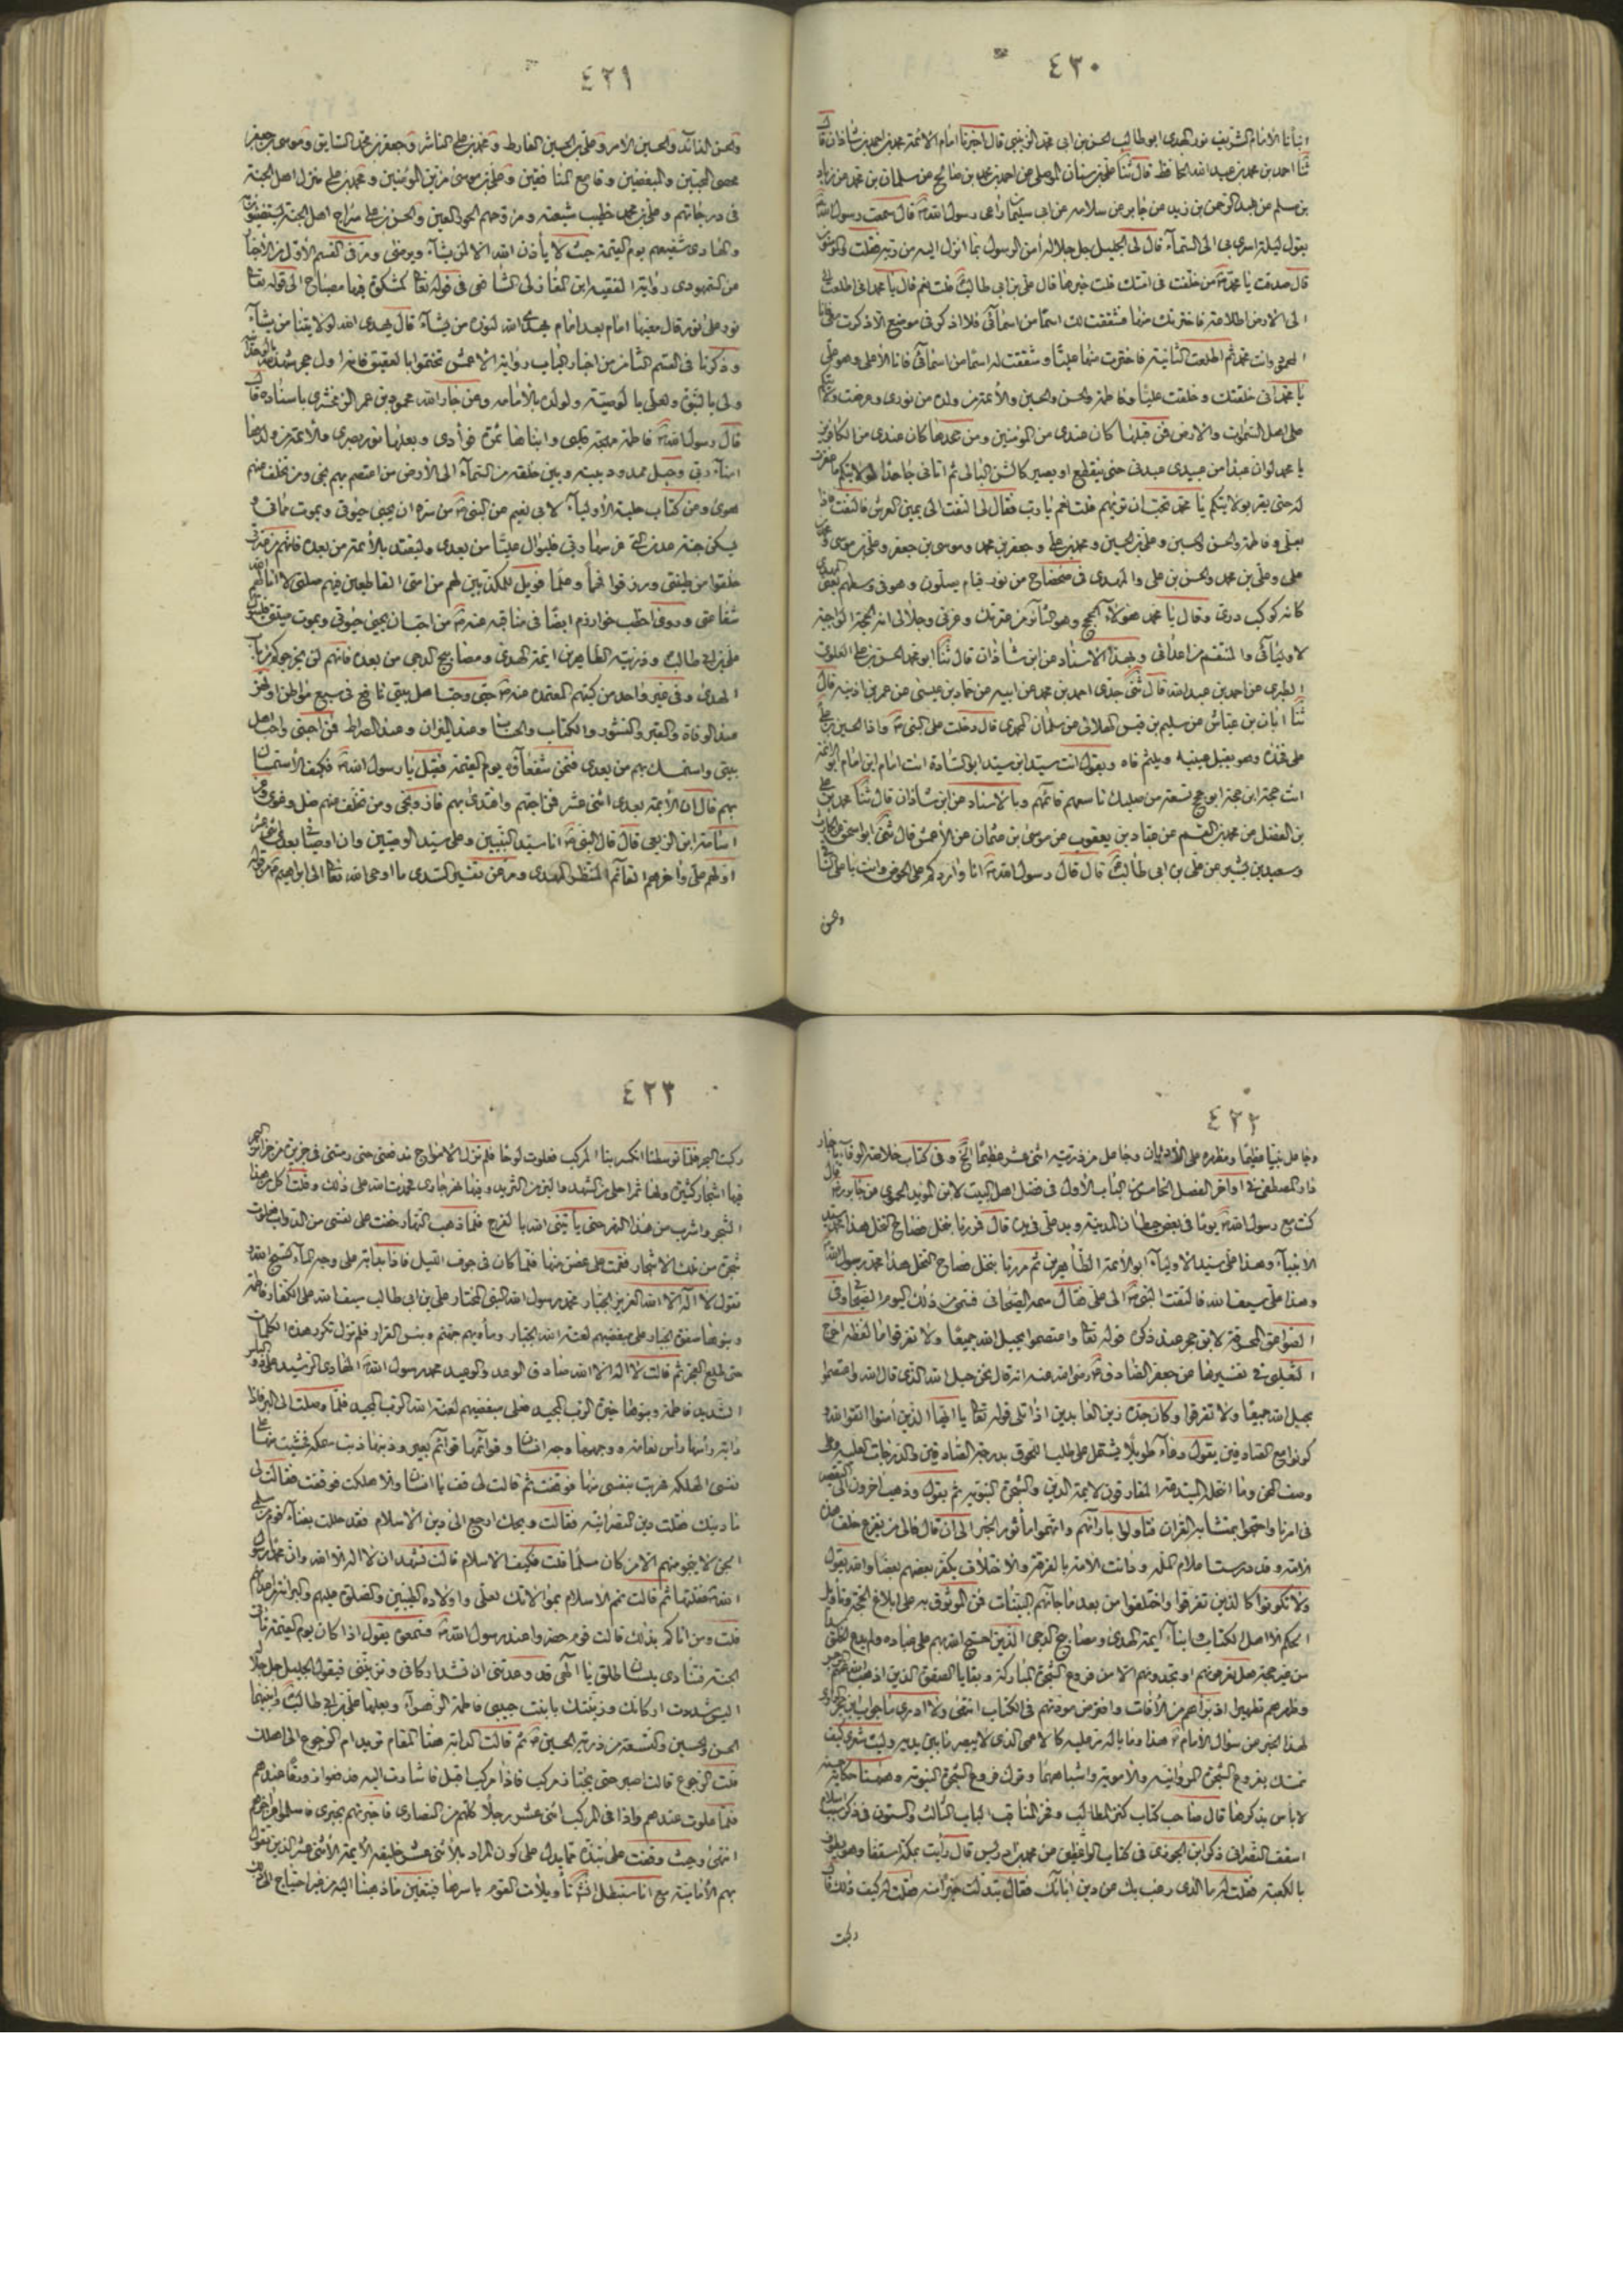 ٤٣٠
انبأنا الامام الشريف نور الهدى ابو طالب الحسن بن ابى محمد الزينبى قال اخبرنا امام الائمة محمد بن احمد بن شاذان قال
ثنا احمد بن محمد بن عبد الله الحافظ قال ثنا على بن سنان الموصلى عن احمد بن محمد بن صالح عن سلمان بن محمد عن زياد
بن مسلم عن عبد الرحمن بن زيد عن جابر عن سلامه عن ابى سليمان راعى رسول الله قال سمعت رسول الله
يقول ليلة اسرى بى الى السمآء قال لى الجليل جل جلاله أمن الرسول بما انزل اليه من ربه فقلت والمؤمنون
قال صدقت يا محمد من خلفت فى امتك قلت خيرها قال على بن ابى طالب قلت نعم قال يا محمد انى اطلعت
الى الارض اطلاعة فاخترتك منها فشققت لك اسمًا من اسمآئى فلا اذكر فى موضع الا ذكرت معى فانا
المحمود وانت محمد ثم اطلعت الثانية فاخترت منها عليّا وشققت له اسما من اسمآئى فانا الأعلى وهو على
يا محمد انى خلقتك وخلقت عليّا وفاطمة والحسن والحسين والأئمة من ولده من نورى وعرضت ولايتكم
على اهل السموات والارض فمن قبلها كان عندى من المؤمنين ومن جحدها كان عندى من الكافرين
يا محمد لو ان عبدا من عبيدى عبدنى حتى ينقطع او يصير كالشن البالى ثم اتانى جاحدا لولايتكم ما غفرت
له حتى يقر بولايتكم يا محمد تحب ان تريهم قلت نعم يا رب فقال لى التفت الى يمين العرش فالتفت فاذا
بعلى وفاطمة والحسن والحسين وعلى بن الحسين ومحمد بن على وجعفر بن محمد وموسى بن جعفر وعلى بن موسى ومحمد بن
على وعلى بن محمد والحسن بن على والمهدى فى ضحضاح من نور قيام يصلون وهو فى وسطهم يعنى المهدى
كانه كوكب درى وقال يا محمد هؤلاء الحجج وهو الثائر من عترتك وعزتى وجلالى انه الحجة الواجبة
لاوليآئى والمنتقم من اعدائى وبهذا الاسناد عن ابن شاذان قال ثنا ابو محمد الحسن بن على العلوى
الطبرى عن احمد بن عبد الله قال ثنى جدى احمد بن محمد عن ابيه عن حماد بن عيسى عن عمر بن اذينه قال
ثنا ابان بن عياش عن سليم بن قيس الهلالى عن سلمان المحمدى قال دخلت على النبى واذا الحسين بن على
على فخذه وهو يقبل عينيه ويلثم فاه ويقول انت سيد ابن سيد ابو السادة انت امام ابن امام ابو الائمة
انت حجة ابن حجة ابو حجج تسعة من صلبك تاسعهم قائمهم وبالاسناد عن ابن شاذان قال ثنا محمد بن على
بن الفضل عن محمد بن القسم عن عباد بن يعقوب عن موسى بن عثمان عن الأعمش قال ثنى ابو اسحق عن الحارث
وسعيد بن بشير عن على بن ابى طالب قال قال رسول الله انا واردكم على الحوض وانت يا على الساقى
والحسن
٤٣١
والحسن الذائد والحسين الأمر وعلى بن الحسين الفارط ومحمد بن على الناشر وجعفر بن محمد السايق وموسى بن جعفر
محصى المحبين والمبغضين وقامع المنافقين وعلى بن موسى مزين المؤمنين ومحمد بن على منزل اهل الجنة
فى درجاتهم وعلى بن محمد خطيب شيعته ومزوجهم الحور العين والحسن بن على سراج اهل الجنة يستضيئون به
والهادى شفيعهم يوم القيمة حيث لا يأذن الله الا لمن يشآء ويرضى ومر فى القسم الأول من الأخبار
عن السمهودى رواية الفقيه ابن المغازلى الشافعى فى قوله تعالى كمشكوة فيها مصباح الى قوله تعالى
نور على نور قال منها امام بعد امام يهدى الله لنوره من يشآء قال يهدى الله لولايتنا من يشآء
وذكرنا فى القسم الثانى من اخبار الباب رواية الأعمش تختموا بالعقيق فانه اول حجر شهد لله بالوحدانية
ولى بالنبوة ولعلى بالوصية ولولده بالأمامه وعن جار الله محمود بن عمر الزمخشرى باسناده قال
قال رسول الله فاطمة مهجة قلبى وابناها ثمرة فوأدى وبعلها نور بصرى والأئمة من ولدها
امنآء ربى وحبل ممدود بينه وبين خلقه من السمآء الى الأرض من اعتصم بهم نجى ومن تخلف عنهم
هوى ومن كتاب حلية الأوليآء لابى نعيم عن النبى من سره ان يحيى حيوتى ويموت مماتى و
يسكن جنة عدن التى غرسها ربى فليوال عليّا من بعدى وليقتد بالأئمة من بعده فانهم عترتى
خلقوا من طينتى ورزقوا فهمًا وعلمًا فويل للمكذبين لهم من امتى القاطعين فيهم صلتى لا انالهم الله
شفاعتى وروى اخطب خوارزم ايضًا فى مناقبه عنه من احب ان يحيى حيوتى ويموت ميتتى فليتول
على بن ابى طالب وذريته الطاهرين ائمة الهدى ومصابيح الدجى من بعده فانهم لن يخرجوكم من باب
الهدى وفى غير واحد من كتبهم المعتمده عنه حبى وحب اهل بيتى نافع فى سبع مواطن اولهن
عند الوفاة والقبر والنشور والكتاب والحساب وعند الميزان وعند الصراط فمن احبنى واحب اهل
بيتى واستمسك بهم من بعدى فنحن شفعاؤه يوم القيمة فقيل يا رسول الله فكيف الأستمساك
بهم قال ان الأئمة بعدى اثنى عشر فمن احبهم واقتدى بهم فاز ونجى ومن تخلف عنهم ضل وغوى وعن
اسامة ابن الربعى قال قال النبى انا سيد النبيين وعلى سيد الوصيين وان اوصيائى بعدى اثنى عشر
اولهم على واخرهم القآئم المنتظر المهدى ومر عن تفسير السدى ما اوحى الله تعالى الى ابراهيم
٤٣٢
وجاعل نبيا عظيما ومظهره على الأديان وجاعل من ذريته اثنى عشر عظيمًا الخ وفى كتاب خلاصة الوفا باخبار
دار المصطفى فى اواخر الفصل الخامس من الباب الأول فى فضل اهل البيت لابن المؤيد الحموى عن جابر قال
كنت مع رسول الله يومًا فى بعض حيطان المدينة ويد على فى يده قال فمررنا بنخل فصاح النخل هذا محمد سيد
الأنبيآء وهذا على سيد الاوليآء ابو الأئمة الطاهرين ثم مررنا بنخل فصاح النخل هذا محمد رسول الله
وهذا على سيف الله فالتفت النبى الى على فقال سمه الصيحانى فسمى من ذلك اليوم الصيحانى وفى
الصواعق المحرقة لابن حجر عند ذكر قوله تعالى واعتصموا بحبل الله جميعًا ولا تفرقوا ما لفظه اخرج
الثعلبى فى تفسيرها عن جعفر الصادق رضى الله عنه انه قال نحن حبل الله الذى قال الله واعتصموا
بحبل الله جميعًا ولا تفرقوا وكان جده زين العابدين اذا تلى قوله تعالى يا ايها الذين آمنوا اتقوا الله و
كونوا مع الصادقين يقول دعآء طويلًا يشتمل على طلب اللحوق بدرجة الصادقين والدرجات العلية وعلى
وصف المحن وما انتحله المبتدعة المفارقون لأئمة الدين والشجرة النبوية ثم يقول وذهب آخرون الى التقصير
فى امرنا واحتجوا بمتشابه القرآن فتاولوا بارآئهم واتهموا مأثور الخبر الى ان قال فالى من يفزع خلف هذه
الامة وقد درست اعلام الملة ودانت الأمة بالفرقة والاختلاف يكفر بعضهم بعضا والله يقول
ولا تكونوا كالذين تفرقوا واختلفوا من بعد ما جآئهم البينات فمن الموثوق به على ابلاغ الحجة وتأويل
الحكم الا اهل الكتاب وابنآء ائمة الهدى ومصابيح الدجى الذين احتج الله بهم على عباده ولم يدع الخلق سدى
من غير حجة هل تعرفونهم او تجدونهم الا من فروع الشجرة المباركة وبقايا الصفوة الذين اذهب الله عنهم الرجس
وطهرهم تطهيرا وبرأهم من الأفات وافترض مودتهم فى الكتاب انتهى ولا ادرى ما جواب ابن حجر الراوى
لهذا الخبر عن سؤال الأمام هذا وما باله نزعليه كالأعمى الذى لا يبصر ما بين يديه وليت شعرى كيف
تمسك بفروع الشجرة المروانية والأموية واشباههما وترك فروع الشجرة النبوية وههنا حكاية حسنة
لا بأس بذكرها قال صاحب كتاب كنز المطالب وفخر المناقب الباب الثالث والستون فى ذكر سبب اسلام
اسقف النصرانى ذكر ابن الجوزى فى كتاب الواعظين عن محمد بن ادريس قال رأيت بمكة اسقفا وهو يطوف
بالكعبة فقلت له ما الذى رغب بك عن دين آبائك فقال تبدلت خيرًا منه فقلت له كيف ذلك قال
ركبت
٤٣٣
ركبت البحر فلما توسطنا انكسر بنا المركب فعلوت لوحا فلم تزل الأمواج تدفعنى حتى رمتنى فى جزيرة من جزائر البحر
فيها اشجار كثيرة ولها ثمر احلى من الشهد والين من الزبد وفيها نهر جارى فحمدت الله على ذلك وقلت آكل من هذا
الشجر واشرب من هذا النهر حتى يأتينى الله بالفرج فلما ذهب النهار خفت على نفسى من الدواب فعلوت
شجرة من تلك الاشجار فنمت على غصن منها فلما كان فى جوف الليل فاذا بدابة على وجه المآء تسبح الله و
تقول لا اله الا الله العزيز الجبار محمد رسول الله النبى المختار على بن ابى طالب سيف الله على الكفار فاطمة
وبنوها صفوة الجبار على مبغضيهم لعنة الله الجبار ومأويهم جهنم وبئس القرار فلم تزل تكرر هذه الكلمات
حتى طلع الفجر ثم قالت لا اله الا الله صادق الوعد والوعيد محمد رسول الله الهادى الرشيد على ذو البأس
الشديد فاطمة وبنوها خيرة الرب المجيد فعلى مبغضيهم لعنة الله الرب المجيد فلما وصلت الى البر فاذا
دابة رأسها رأس نعامة ووجهها وجه انسان وقوائمها قوآئم بعير وذنبها ذنب سمكة فخشيت منها على
نفسى الهلكة فهربت بنفسى منها فوقفت ثم قالت لى قف يا انسان والا هلكت فوقفت فقالت لى
ما دينك فقلت دين النصرانية فقالت ويحك ارجع الى دين الاسلام فقد حللت بفنآء قوم من مسلمى
الجن لا ينجو منهم الا من كان مسلمًا فقلت فكيف الاسلام قالت تشهد ان لا اله الا الله وان محمدا رسول
الله فقلتها ثم قالت تمم الأسلام بموالاتك لعلى واولاده الطيبين والصلوة عليهم والبرائة من اعدائهم
قلت ومن اتاكم بذلك قالت قوم حضروا عند رسول الله فسمعوه يقول اذا كان يوم القيمة تأتى
الجنة فتنادى بلسان طلق يا الهى قد وعدتنى ان تشد اركانى وتزيننى فيقول الجليل جل جلاله
اليس شددت اركانك وزينتك بابنت حبيبى فاطمة الزهرآء وبعلها على بن ابى طالب وابنيهما
الحسن والحسين والتسعة من ذرية الحسين ثم قالت الدابة هنا المقام تريد ام الرجوع الى اهلك
قلت الرجوع قالت اصبر حتى يجتاز مركب فاذا مركب اقبل فاشارت اليه فدفعوا زورقًا عندهم
فلما علوت عندهم واذا فى المركب اثنى عشر رجلًا كلهم من النصارى فاخبرتهم بخبرى فاسلموا من آخرهم
انتهى وحيث وقفت على نبذة مما يدل على كون المراد بالأثنى عشر خليفه الأئمة الأثنى عشر الذين تقول
بهم الأمامية مع انا سنبطل ان شآء الله تأويلات القوم باسرها فيتعين ما ذهبنا اليه من غير احتياج